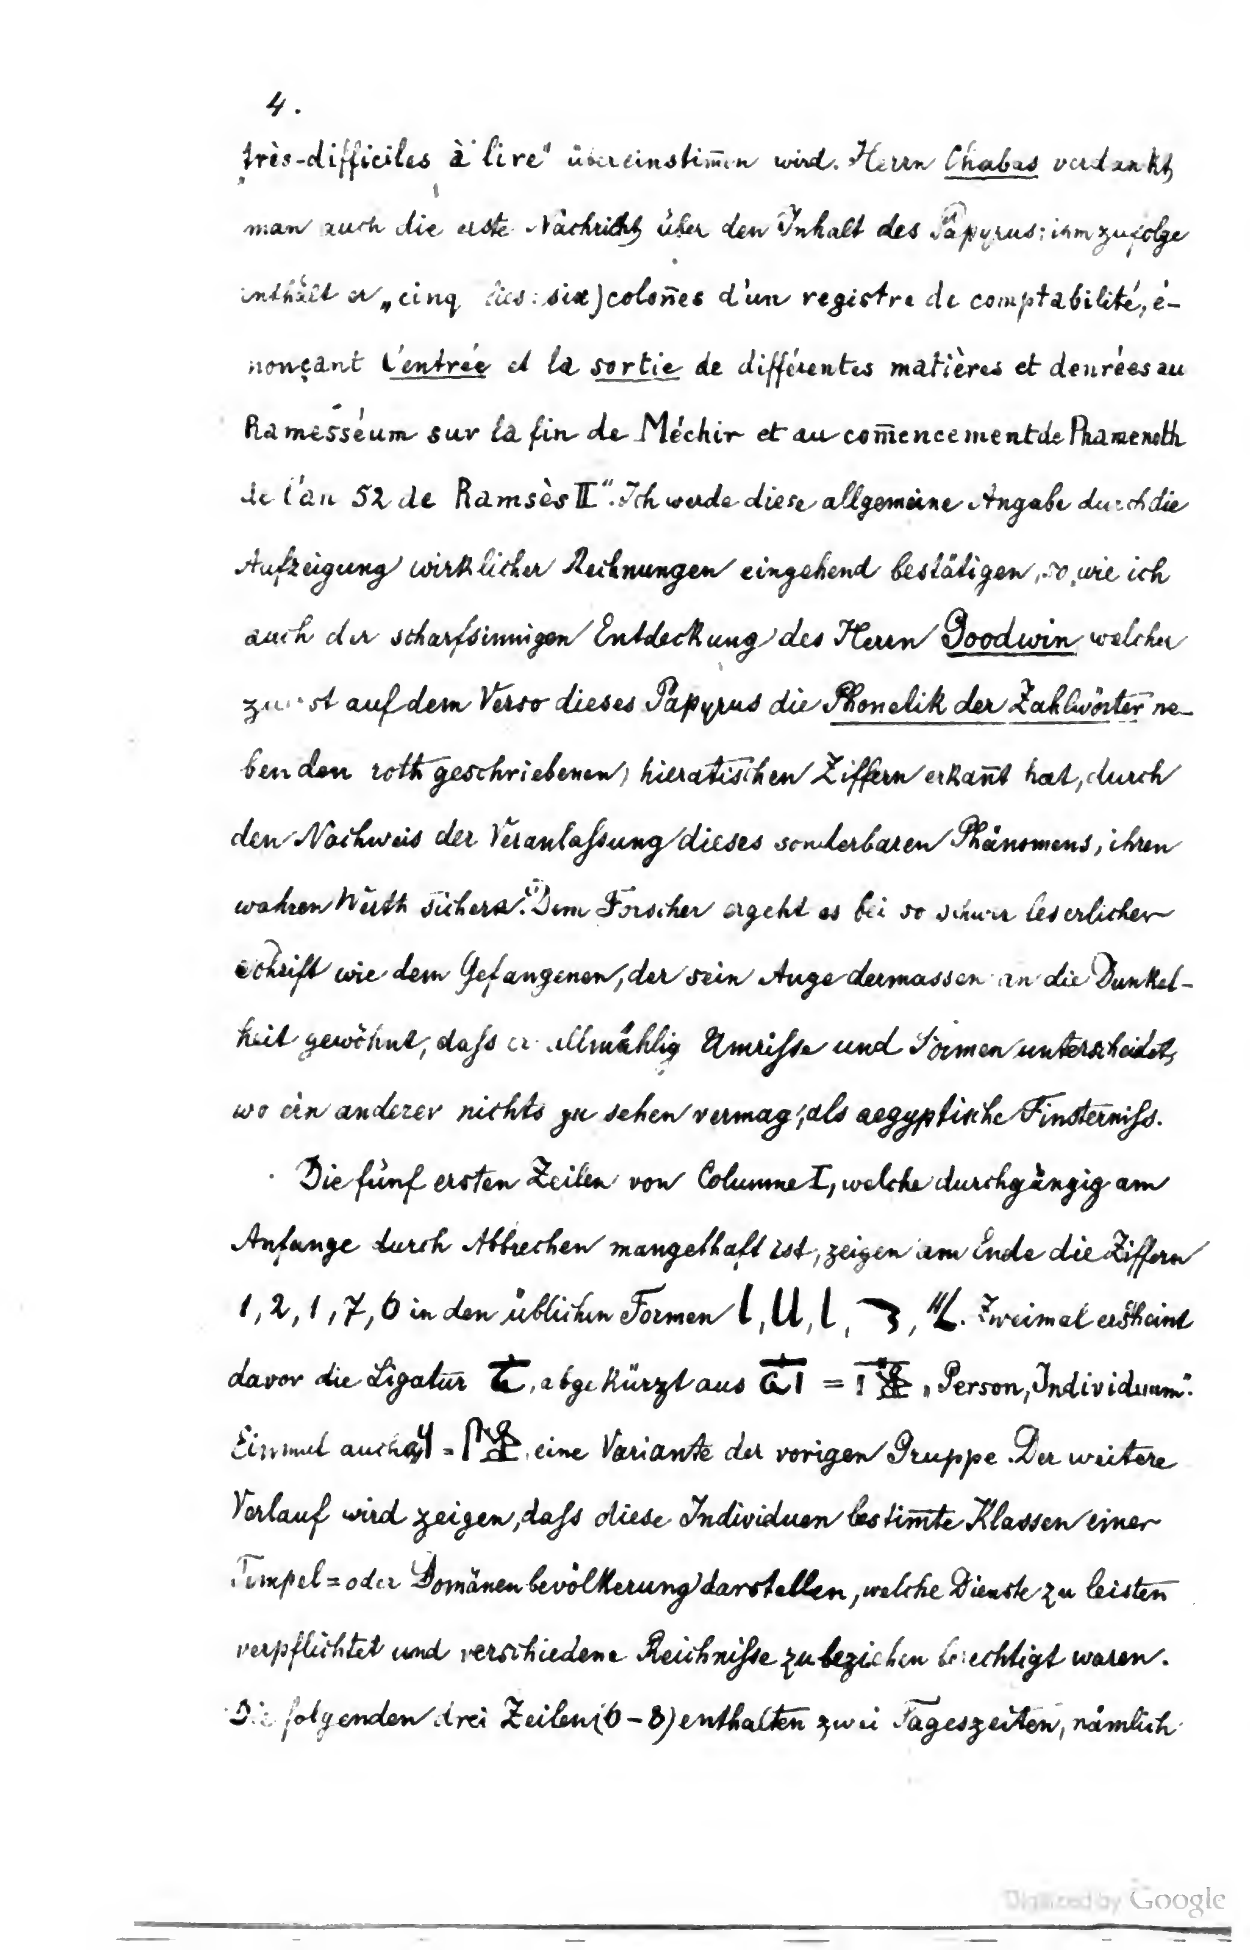 4.
„très-difficiles à lire“ übereinstim̅en wird. Herrn Chabas verdankt
man auch die erste Nachricht über den Inhalt des Papyrus: ihm zufolge
enthält er „cinq (lies: six) colon̅es d'un registre de comptabilité, é-
nonçant l'entrée et la sortie de différentes matières et denrées au
Ramesséum sur la fin de Méchir et au com̅encement de Phamenoth
de l'an 52 de Ramsès II“. Ich werde diese allgemeine Angabe durch die
Aufzeigung wirklicher Rechnungen eingehend bestätigen, so wie ich
auch der scharfsinnigen Entdeckung des Herrn Goodwin, welcher
zuerst auf dem Verso dieses Papyrus die Phonetik der Zahlwörter ne-
ben den roth geschriebenen hieratischen Ziffern erkan̅t hat, durch
den Nachweis der Veranlaſsung dieses sonderbaren Phänomens, ihren
wahren Werth sichere. Dem Forscher ergeht es bei so schwer leserlicher
Schrift wie dem Gefangenen, der sein Auge dermassen an die Dunkel-
heit gewöhnt, daſs er allmählig Umriſse und Formen unterscheidet,
wo ein anderer nichts zu sehen vermag, als aegyptische Finsterniſs.
Die fünf ersten Zeilen von Columne I, welche durchgängig am
Anfange durch Abbrechen mangelhaft ist, zeigen am Ende die Ziffern
1, 2, 1, 7, 6 in den üblichen Formen . Zweimal erscheint
davor die Ligatur , abgekürzt aus = „Person, Individuum“.
Einmal auch = eine Variante der vorigen Gruppe. Der weitere
Verlauf wird zeigen, daſs diese Individuen bestim̅te Klassen einer
Tempel= oder Domänenbevölkerung darstellen, welche Dienste zu leisten
verpflichtet und verschiedene Reichniſse zu beziehen berechtigt waren.
Die folgenden drei Zeilen (6-8) enthalten zwei Tageszeiten, nämlich
Digitized by Google